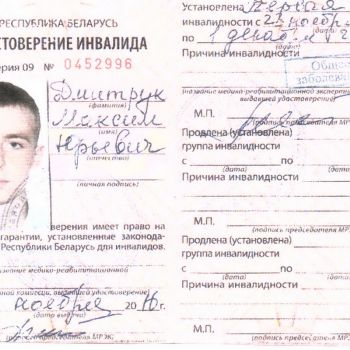 РЕСПУБЛИКА БЕЛАРУСЬ
СТОВЕРЕНИЕ ИНВАЛИДА
ерия 09 № 0452996
Дмитрук
(фамилия)
Максим
(имя)
Юрьевич
(отчество)
(личная подпись)
верения имеет право на
гарантии, установленные законода-
Республики Беларусь для инвалидов.
звание медико-реабилитационной
помощи, выдавшей удостоверение)
ноября 20 16 г.
(дата выдачи)
председателя МРЭК)
Установлена Первая
инвалидности с 22 ноября
по 1 декабря
Причина инвалидности
Общее
заболевание
(название медико-реабилитационной эксперт
выдавшей удостоверение)
М.П.
(подпись председателя МР
Продлена (установлена)
группа инвалидности
с по
(дата) (дата)
Причина инвалидности
М.П.
(подпись председателя МРЭ
Продлена (установлена)
инвалидности
с по
(дата) (дата)
Причина инвалидности
М.П.
(подпись председателя МРЭ